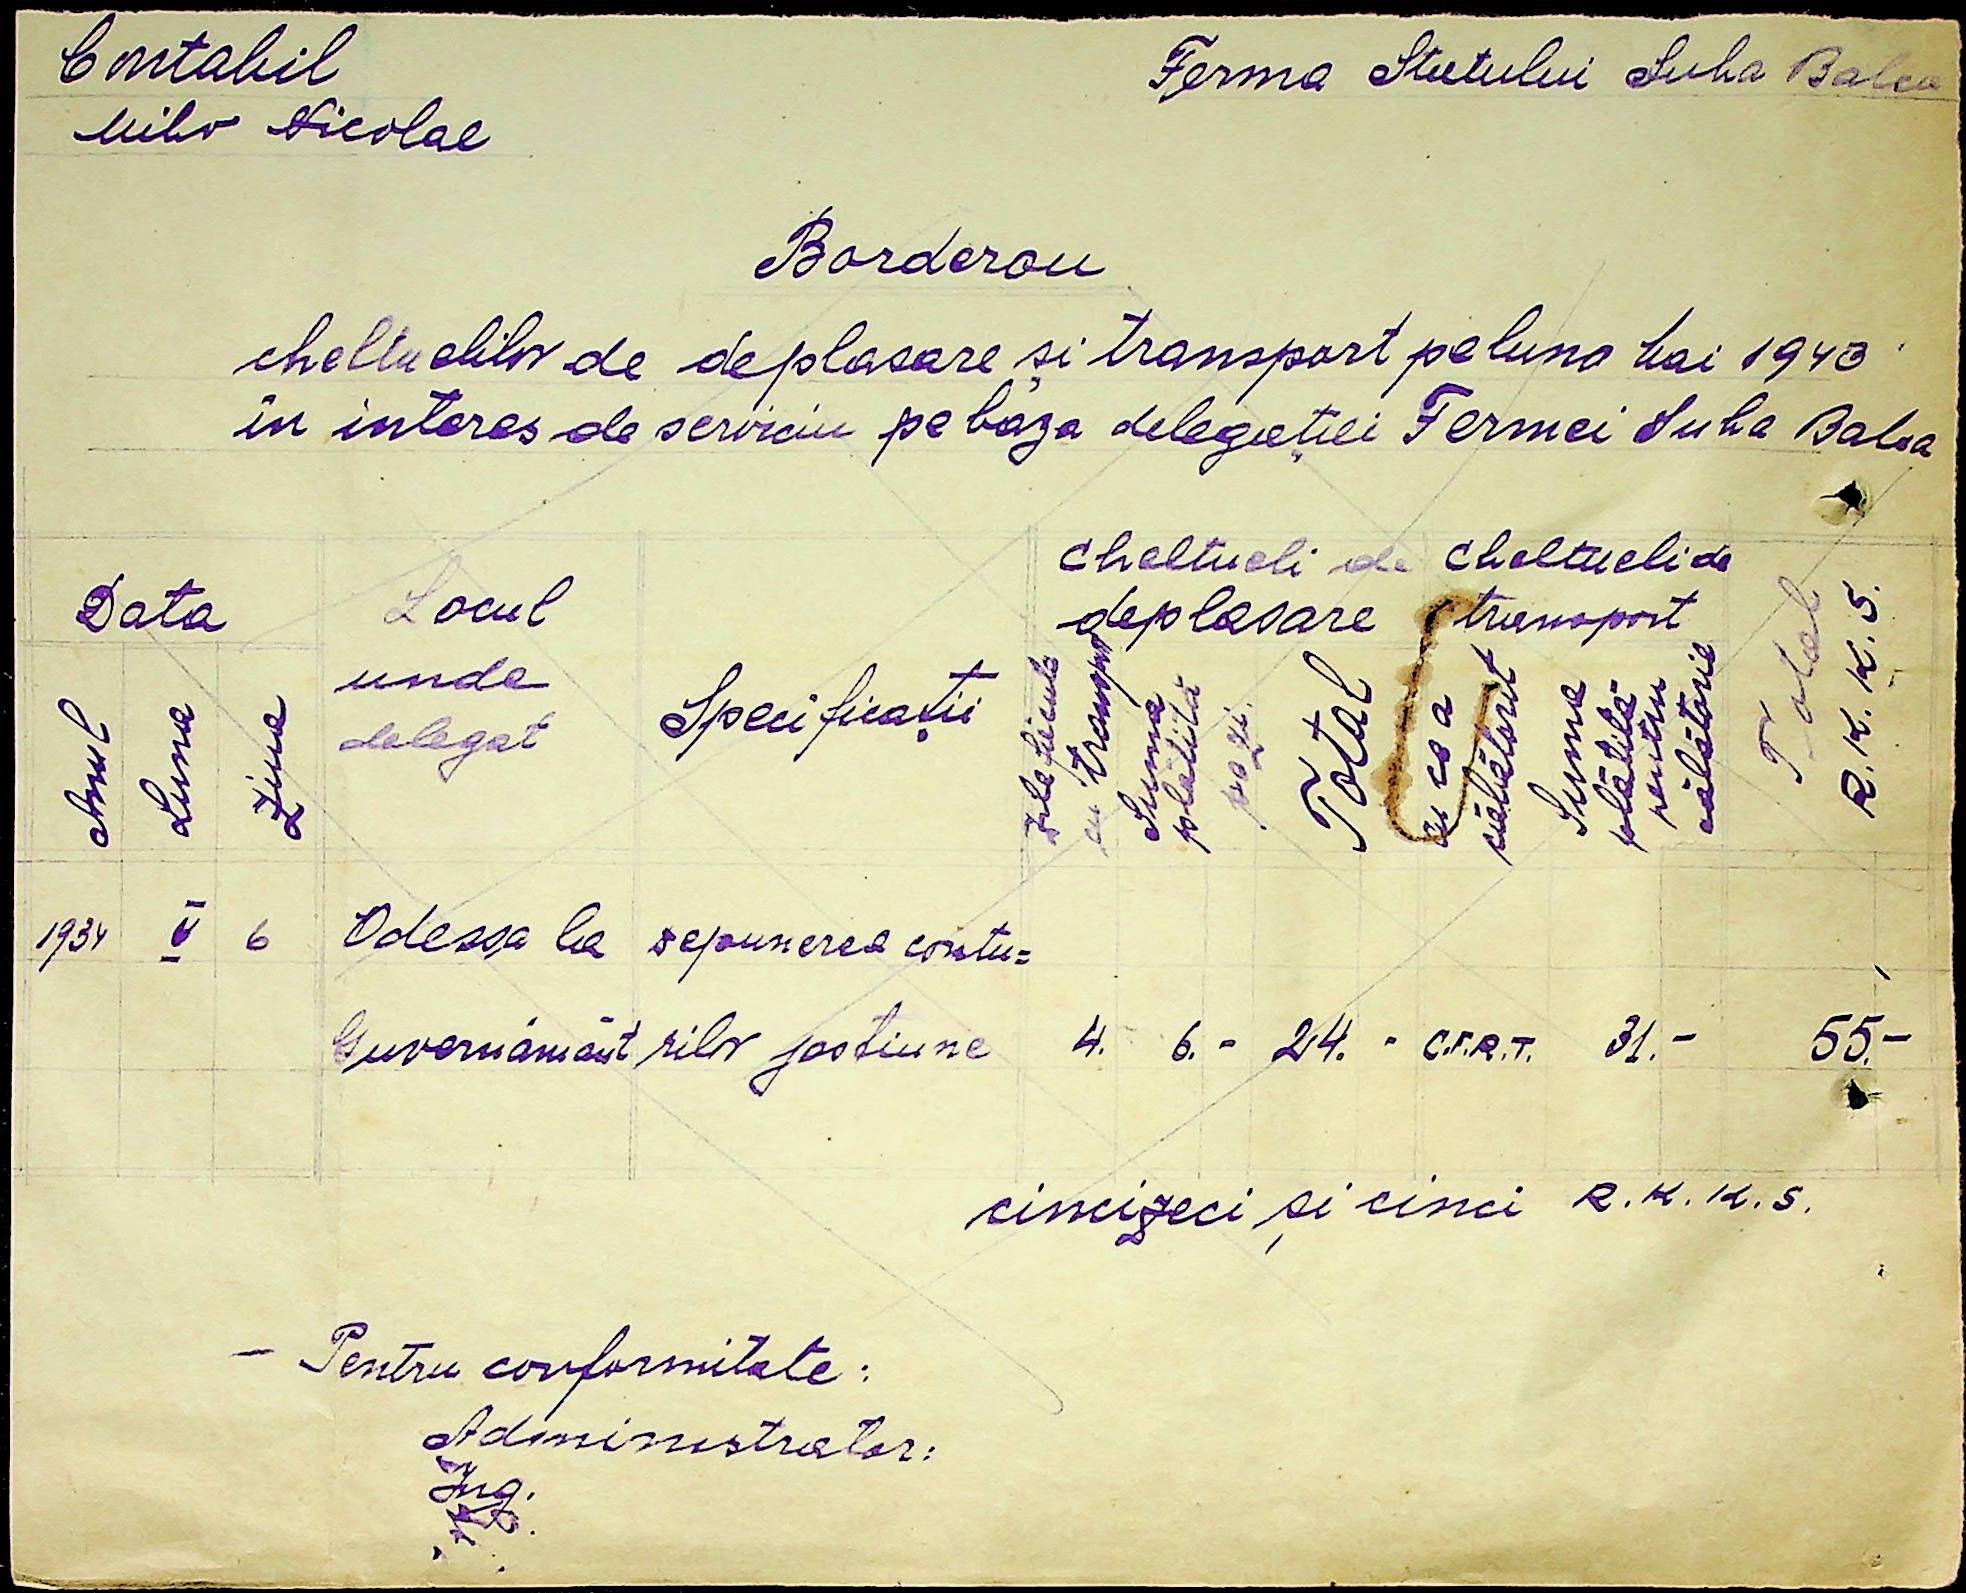 Contabil
Ferma Statului Suha Balca
Nicolae
Borderou
cheltuelilor de deplasare și transport pe luna Mai 1943
în interes de serviciu pe baza delegației Fermei Suha Balca
Data
Locul
unde
delegat
Specificații
Cheltueli de
deplasare
Cheltueli de
transport
Total
R.K.K.S.
Anul
Luna
Ziua
Zile făcute
cu transport
Suma
plătită
pe zi.
Total
cu ce a
călătorit
Suma
plătită
pentru
călătorie
1934 V 6 Odessa la depunerea contu=
Guvernământ rilor gestiune 4. 6.- 24.- C.F.R.T. 31.- 55.-
cincizeci și cinci R.K.K.S.
- Pentru conformitate:
Administrator:
Ing.